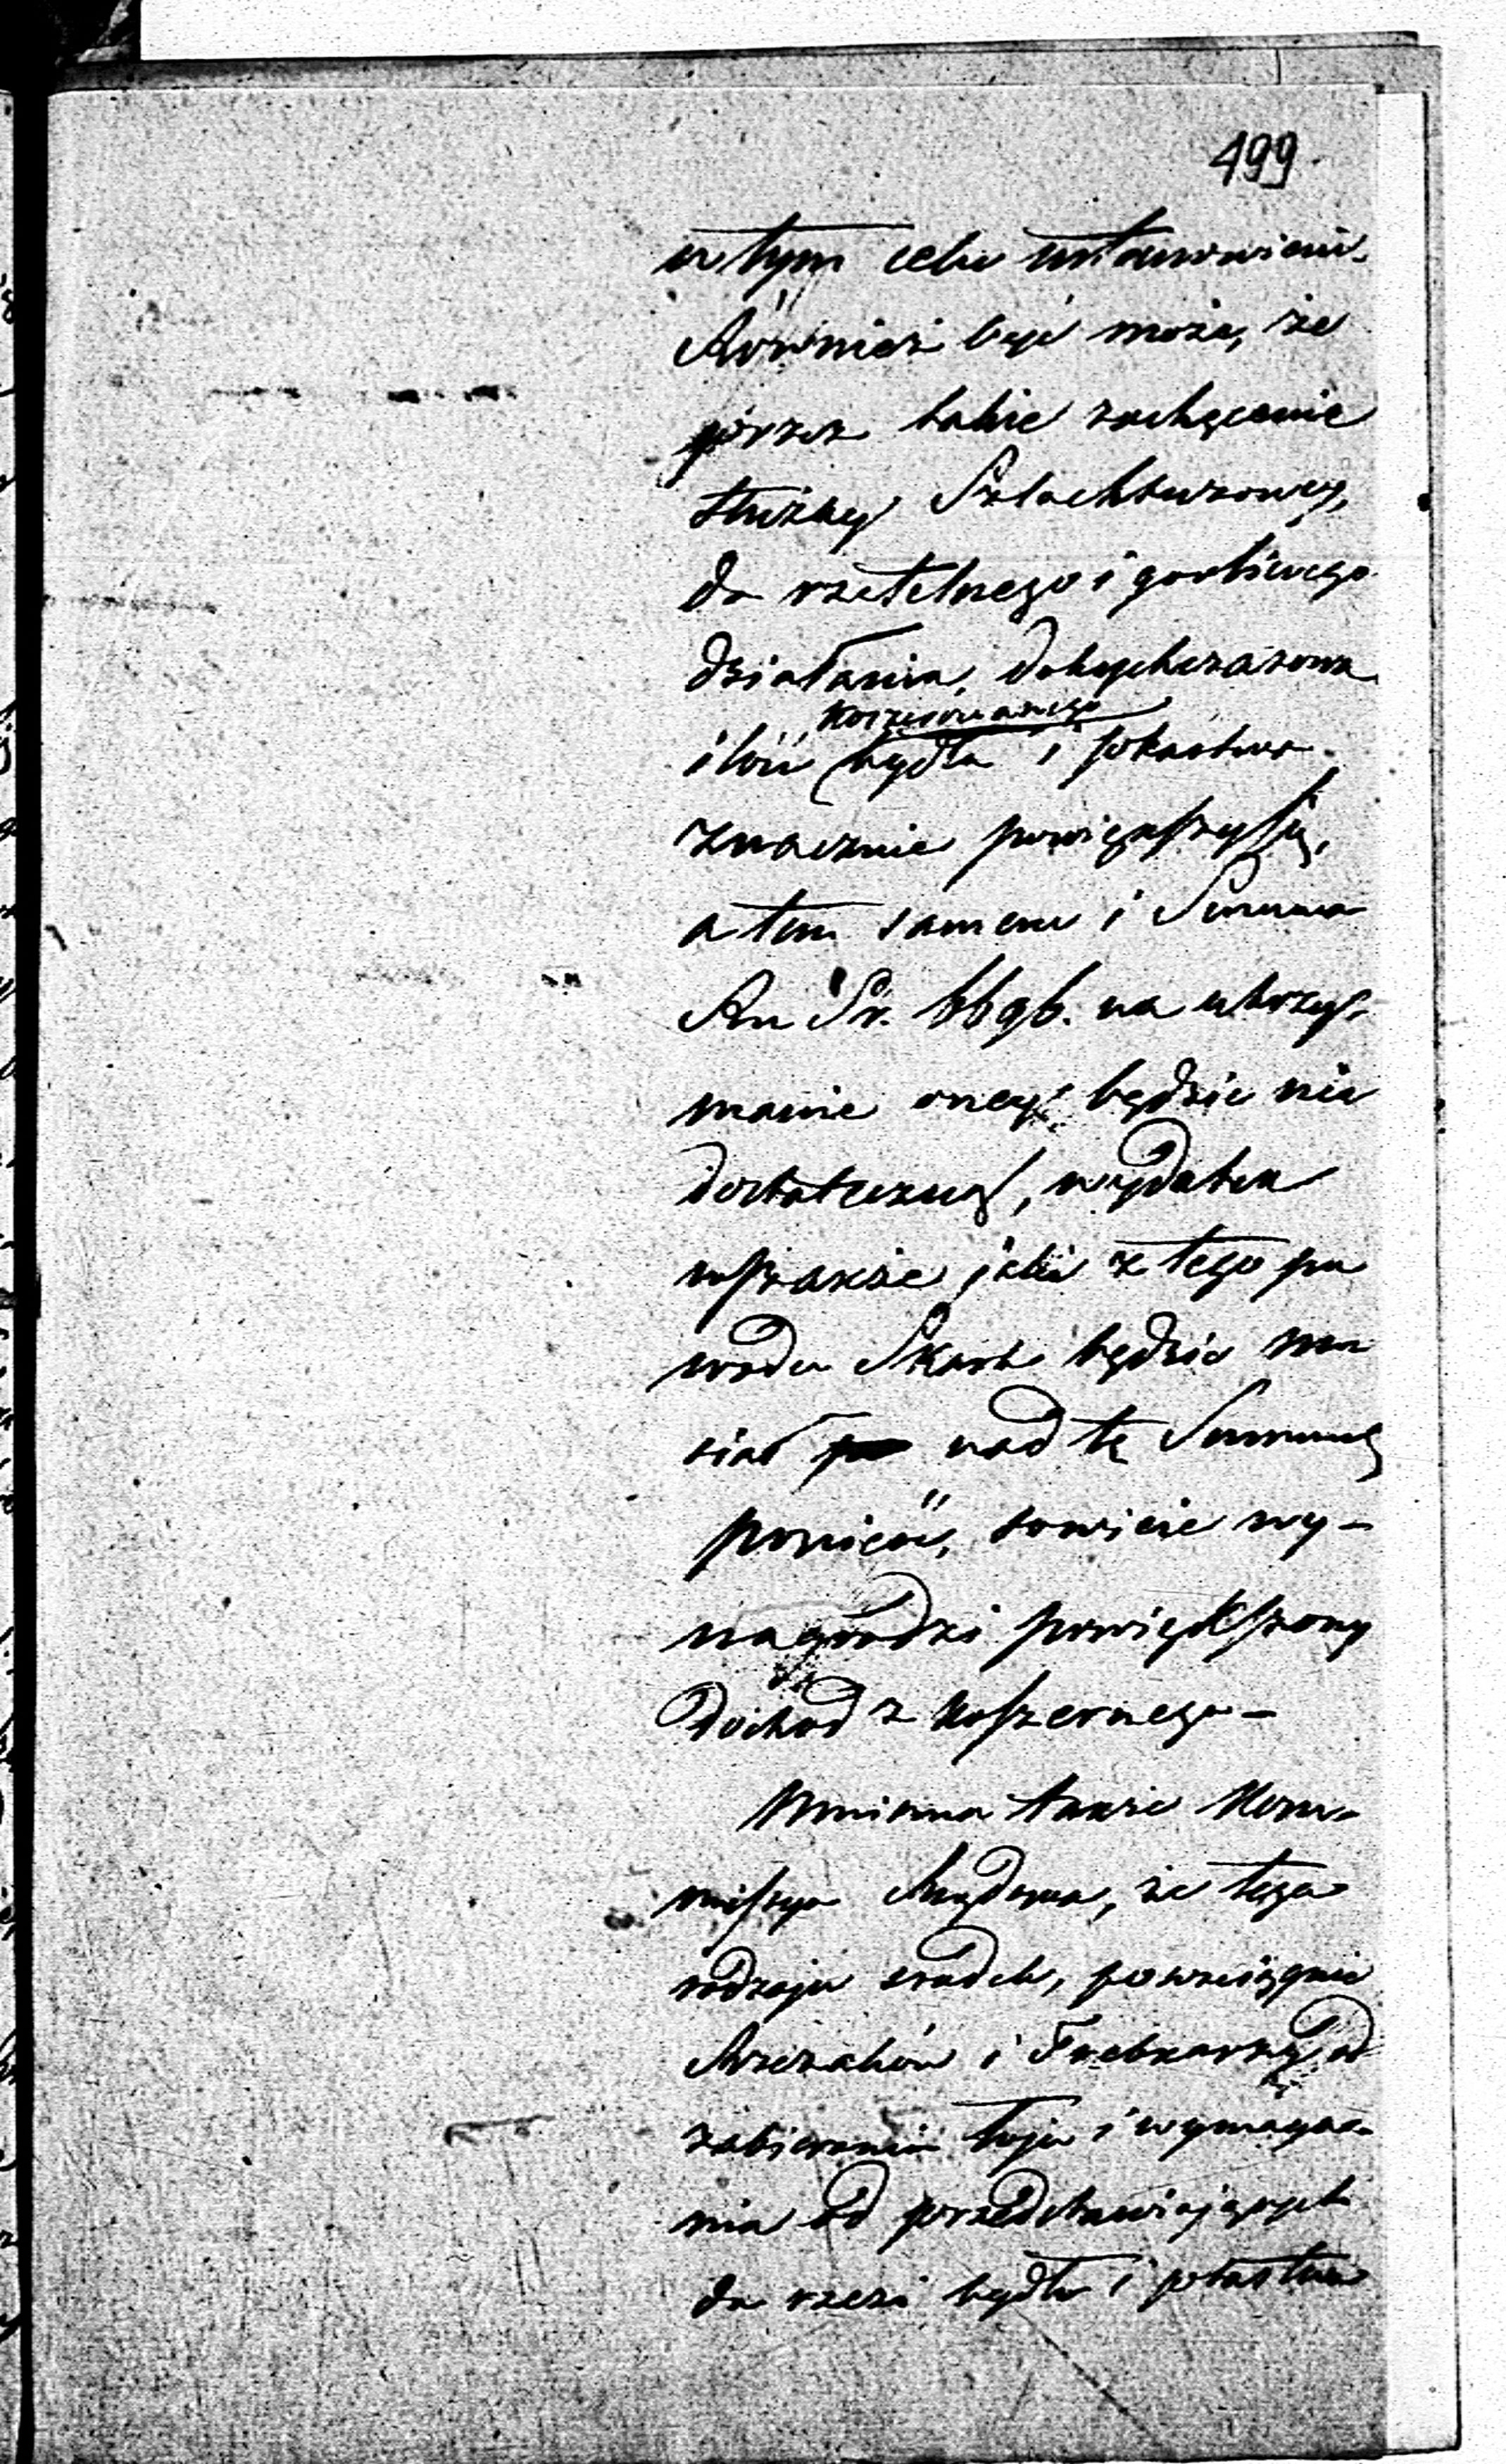 499.
w tym celu ustanowieni.
Również być może, że
przez takie zachęcenie
służby Szlachtuzowey,
do rzetelnego i gorliwego
działania, dotychczasowa
koszerowanego
ilość bydła i ptastwa
znacznie powiększy się,
a tem samem i Summa
Ru Sr. 6696. na utrzy-
manie oney będzie nie
dostateczną, wydatek
wszakże jaki z tego po
wodu Skarb będzie mu
siał nad tę Summę
ponieść, sowicie wy-
nagrodzi powiększony
dochód z koszernego -
Mniema także Kom-
missya Rządowa, że tego
rodzaju środek, powściągnie
Rzezaków i Trebkarzy od
zabierania łoju i wymaga-
nia od przedstawiających
do rzezi bydło i ptastwo